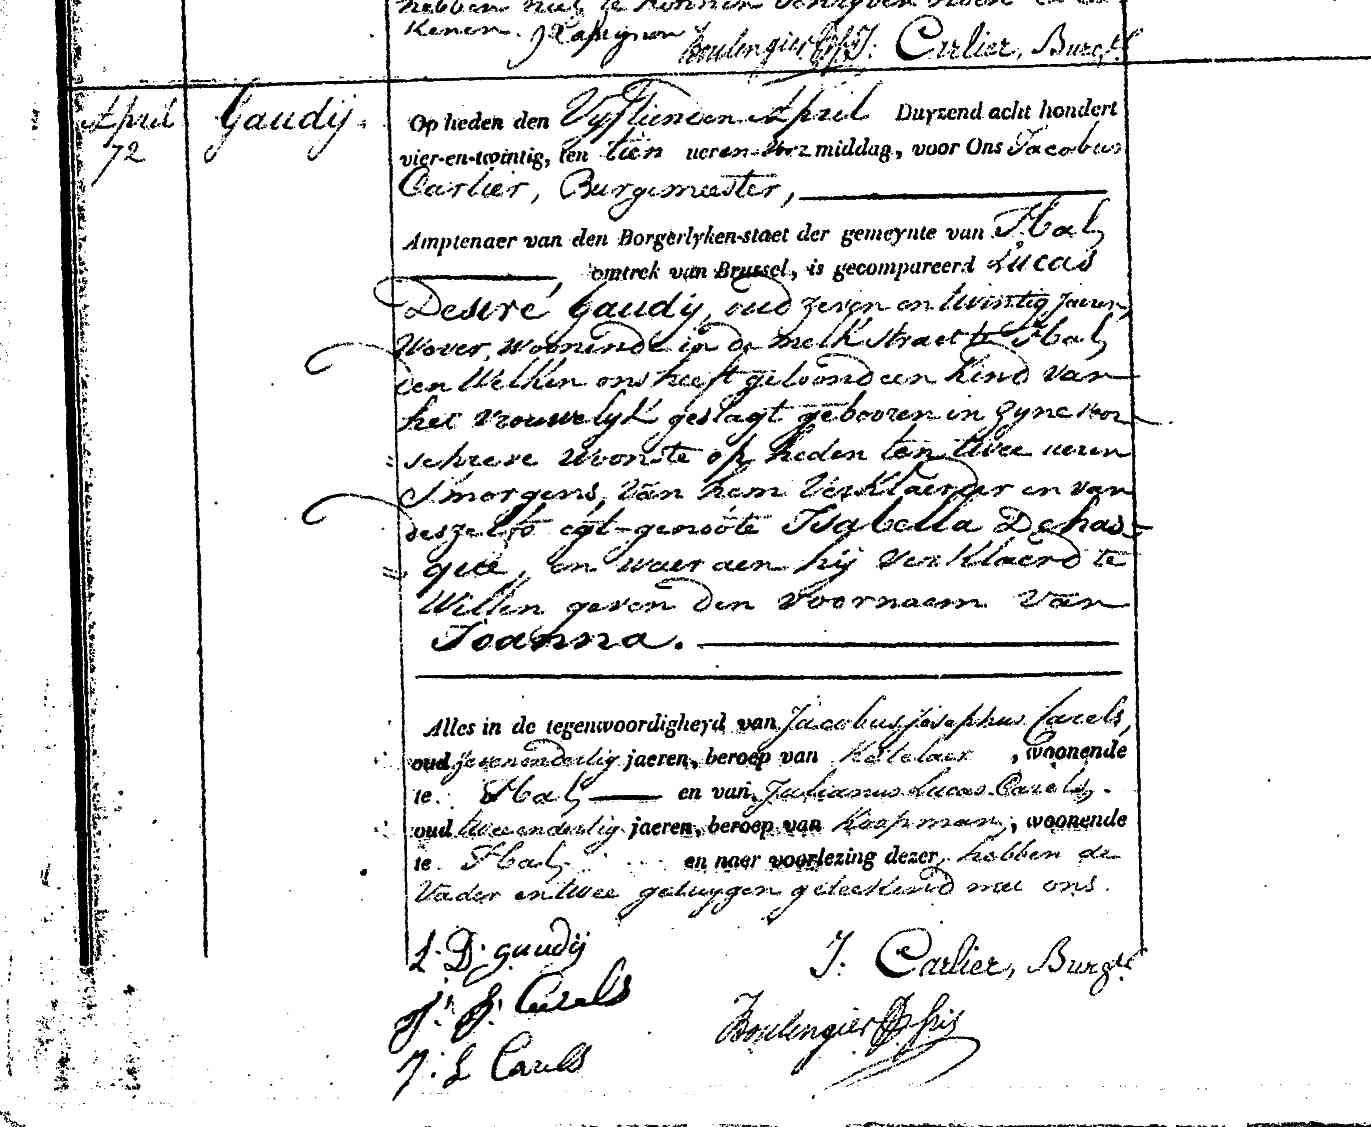 hebben niet te konnen schryven noch te tee
kenen.
Boulengier J: Carlier, Burgtr
April
72
Gaudij.
Op heden den Vyftienden April Duyzend acht hondert
vier-en-twintig, ten tien ueren voor middag, voor Ons Jacobus
Carlier, Burgemeester,
Amptenaer van den Borgerlyken-staet der gemeynte van Hal,
omtrek van Brussel, is gecompareerd Lucas
Desiré Gaudij, oud zeven en twintig jaeren,
Wever, woonende in de melkstraet te Hal,
den Welken ons heeft getoond een kind van
het vrouwelyk geslagt gebooren in zyne voor
schreve woonste op heden ten twee ueren
S'morgens, van hem Verklaerder en van
deszelfs egt-genoote Isabella Dehas=
=quee, en waer aen hij verklaerd te
Willen geven den voornaem van
Joanna.
Alles in de tegenwoordigheyd van Jacobus Josephus Carels,
oud zevenendertig jaeren, beroep van , woonende
te Hal, en van Julianus Lucas Carels,
oud tweeendertig jaeren, beroep van Koopman, woonende
te Hal, en naer voorlezing dezer, hebben de
Vader en twee getuygen geteekend met ons.
L. D. gaudij
J. Carlier, Burgtr
J. J. Carels
Boulengier
J. L Carels